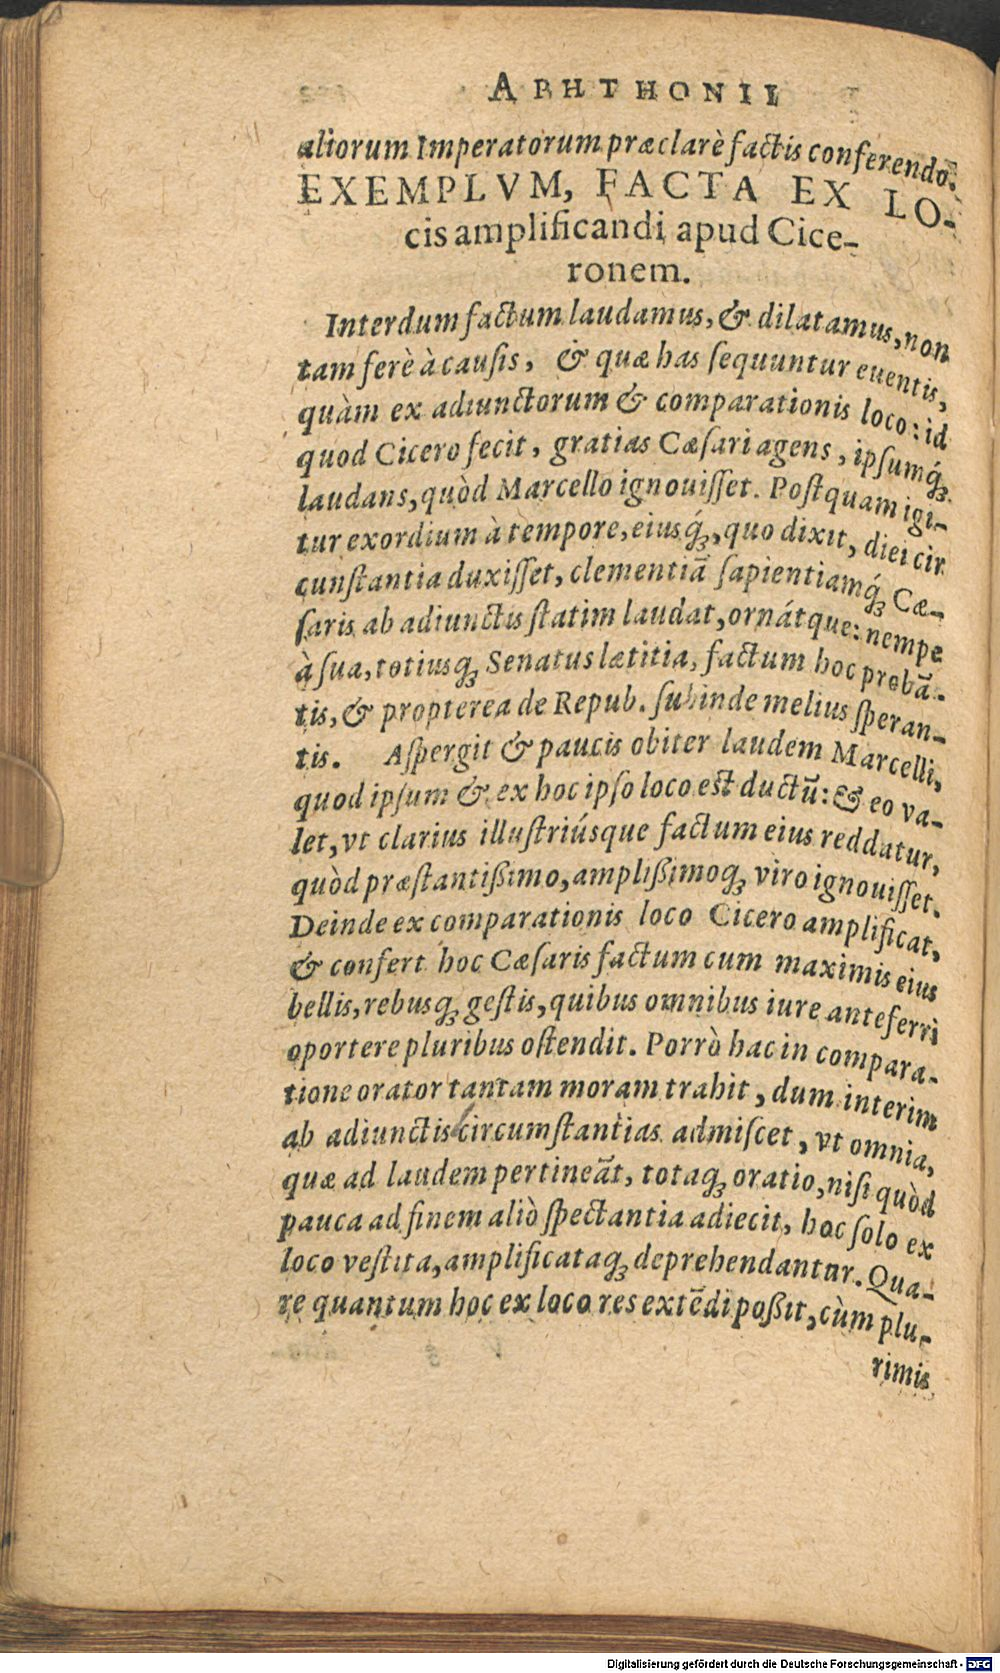 APHTHONII
aliorum Imperatorum præclarè factis conferendo.
EXEMPLVM, FACTA EX LO-
cis amplificandi apud Cice-
ronem.
Interdum factum laudamus, & dilatamus, non
tam ferè à causis, & quæ has sequuntur euentis,
quàm ex adiunctorum & comparationis loco: id
quod Cicero fecit, gratias Cæsari agens, ipsumq́ꝫ
laudans, quòd Marcello ignouisset. Postquam igi-
tur exordium à tempore, eiusq́ꝫ, quo dixit, diei cir
cunstantia duxisset, clementiā sapientiamq́ꝫ Cæ-
saris ab adiunctis statim laudat, ornátque: nempe
à sua, totiusqꝫ Senatus lætitia, factum hoc probā-
tis, & propterea de Repub. subinde melius speran-
tis. Aspergit & paucis obiter laudem Marcelli,
quod ipsum & ex hoc ipso loco est ductū: & eo va-
let, vt clarius illustriúsque factum eius reddatur,
quòd præstantißimo, amplißimoqꝫ viro ignouisset.
Deinde ex comparationis loco Cicero amplificat,
& confert hoc Cæsaris factum cum maximis eius
bellis, rebusqꝫ gestis, quibus omnibus iure anteferri
oportere pluribus ostendit. Porrò hac in compara-
tione orator tantam moram trahit, dum interim
ab adiunctis circumstantias admiscet, vt omnia,
quæ ad laudem pertineāt, totaqꝫ oratio, nisi quòd
pauca ad finem aliò spectantia adiecit, hoc solo ex
loco vestita, amplificataqꝫ deprehendantur. Qua-
re quantum hoc ex loco res extēdi poßit, cùm plu-
rimis
Digitalisierung gefördert durch die Deutsche Forschungsgemeinschaft - DFG